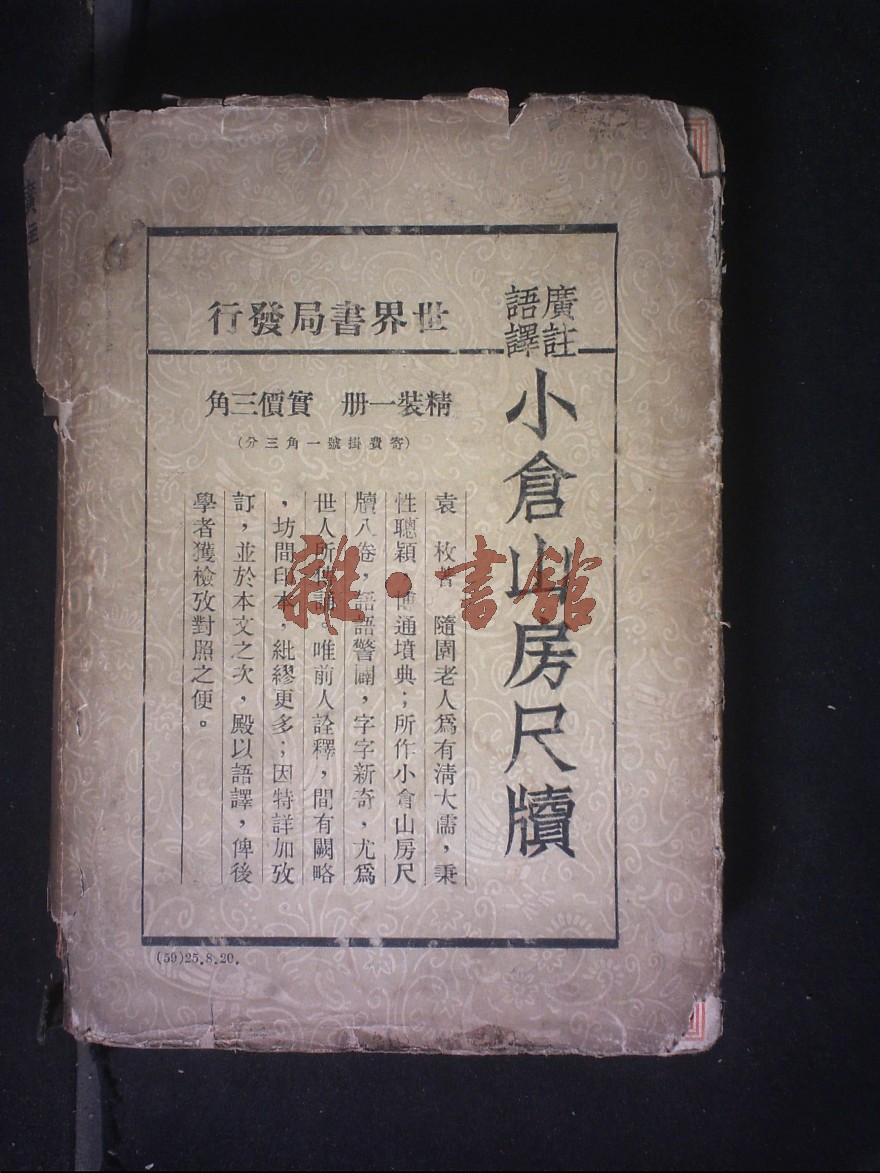 廣註
語譯
小倉山房尺牘
世界書局發行
精裝一册 實價三角
(寄費掛號一角三分)
袁 枚著 隨園老人爲有清大儒,秉
性聰穎 博通墳典;所作小倉山房尺
牘八卷,語語警闢,字字新奇,尤爲
世人所傳誦。唯前人詮釋,間有闕略
,坊間印本,紕繆更多;因特詳加攷
訂,並於本文之次,殿以語譯,俾後
學者獲檢攷對照之便。
(59)25.8.20.
雜·書館
廣